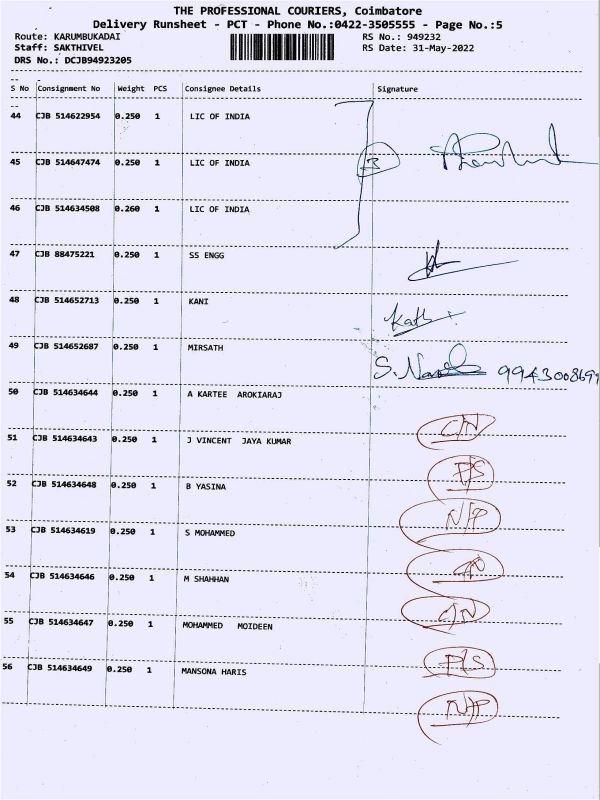 THE PROFESSIONAL COURIERS, Coimbatore
Delivery Runsheet - PCT - Phone No.:0422-3505555 - Page No.:5
Route: KARUMBUKADAI RS No.: 949232
Staff: SAKTHIVEL RS Date: 31-May-2022
DRS No.: DCJB94923205
S No Consignment No Weight PCS Consignee Details Signature
44 CJB 514622954 0.250 1 LIC OF INDIA
45 CJB 514647474 0.250 1 LIC OF INDIA 3
46 CJB 514634508 0.260 1 LIC OF INDIA
47 CJB 88475221 0.250 1 SS ENGG
48 CJB 514652713 0.250 1 KANI
49 CJB 514652687 0.250 1 MIRSATH S. 9943008699
50 CJB 514634644 0.250 1 A KARTEE AROKIARAJ C/N
51 CJB 514634643 0.250 1 J VINCENT JAYA KUMAR P/S
52 CJB 514634648 0.250 1 B YASINA N/P
53 CJB 514634619 0.250 1 S MOHAMMED C/N
54 CJB 514634646 0.250 1 M SHAHHAN C/N
55 CJB 514634647 0.250 1 MOHAMMED MOIDEEN P/S
56 CJB 514634649 0.250 1 MANSONA HARIS N/P